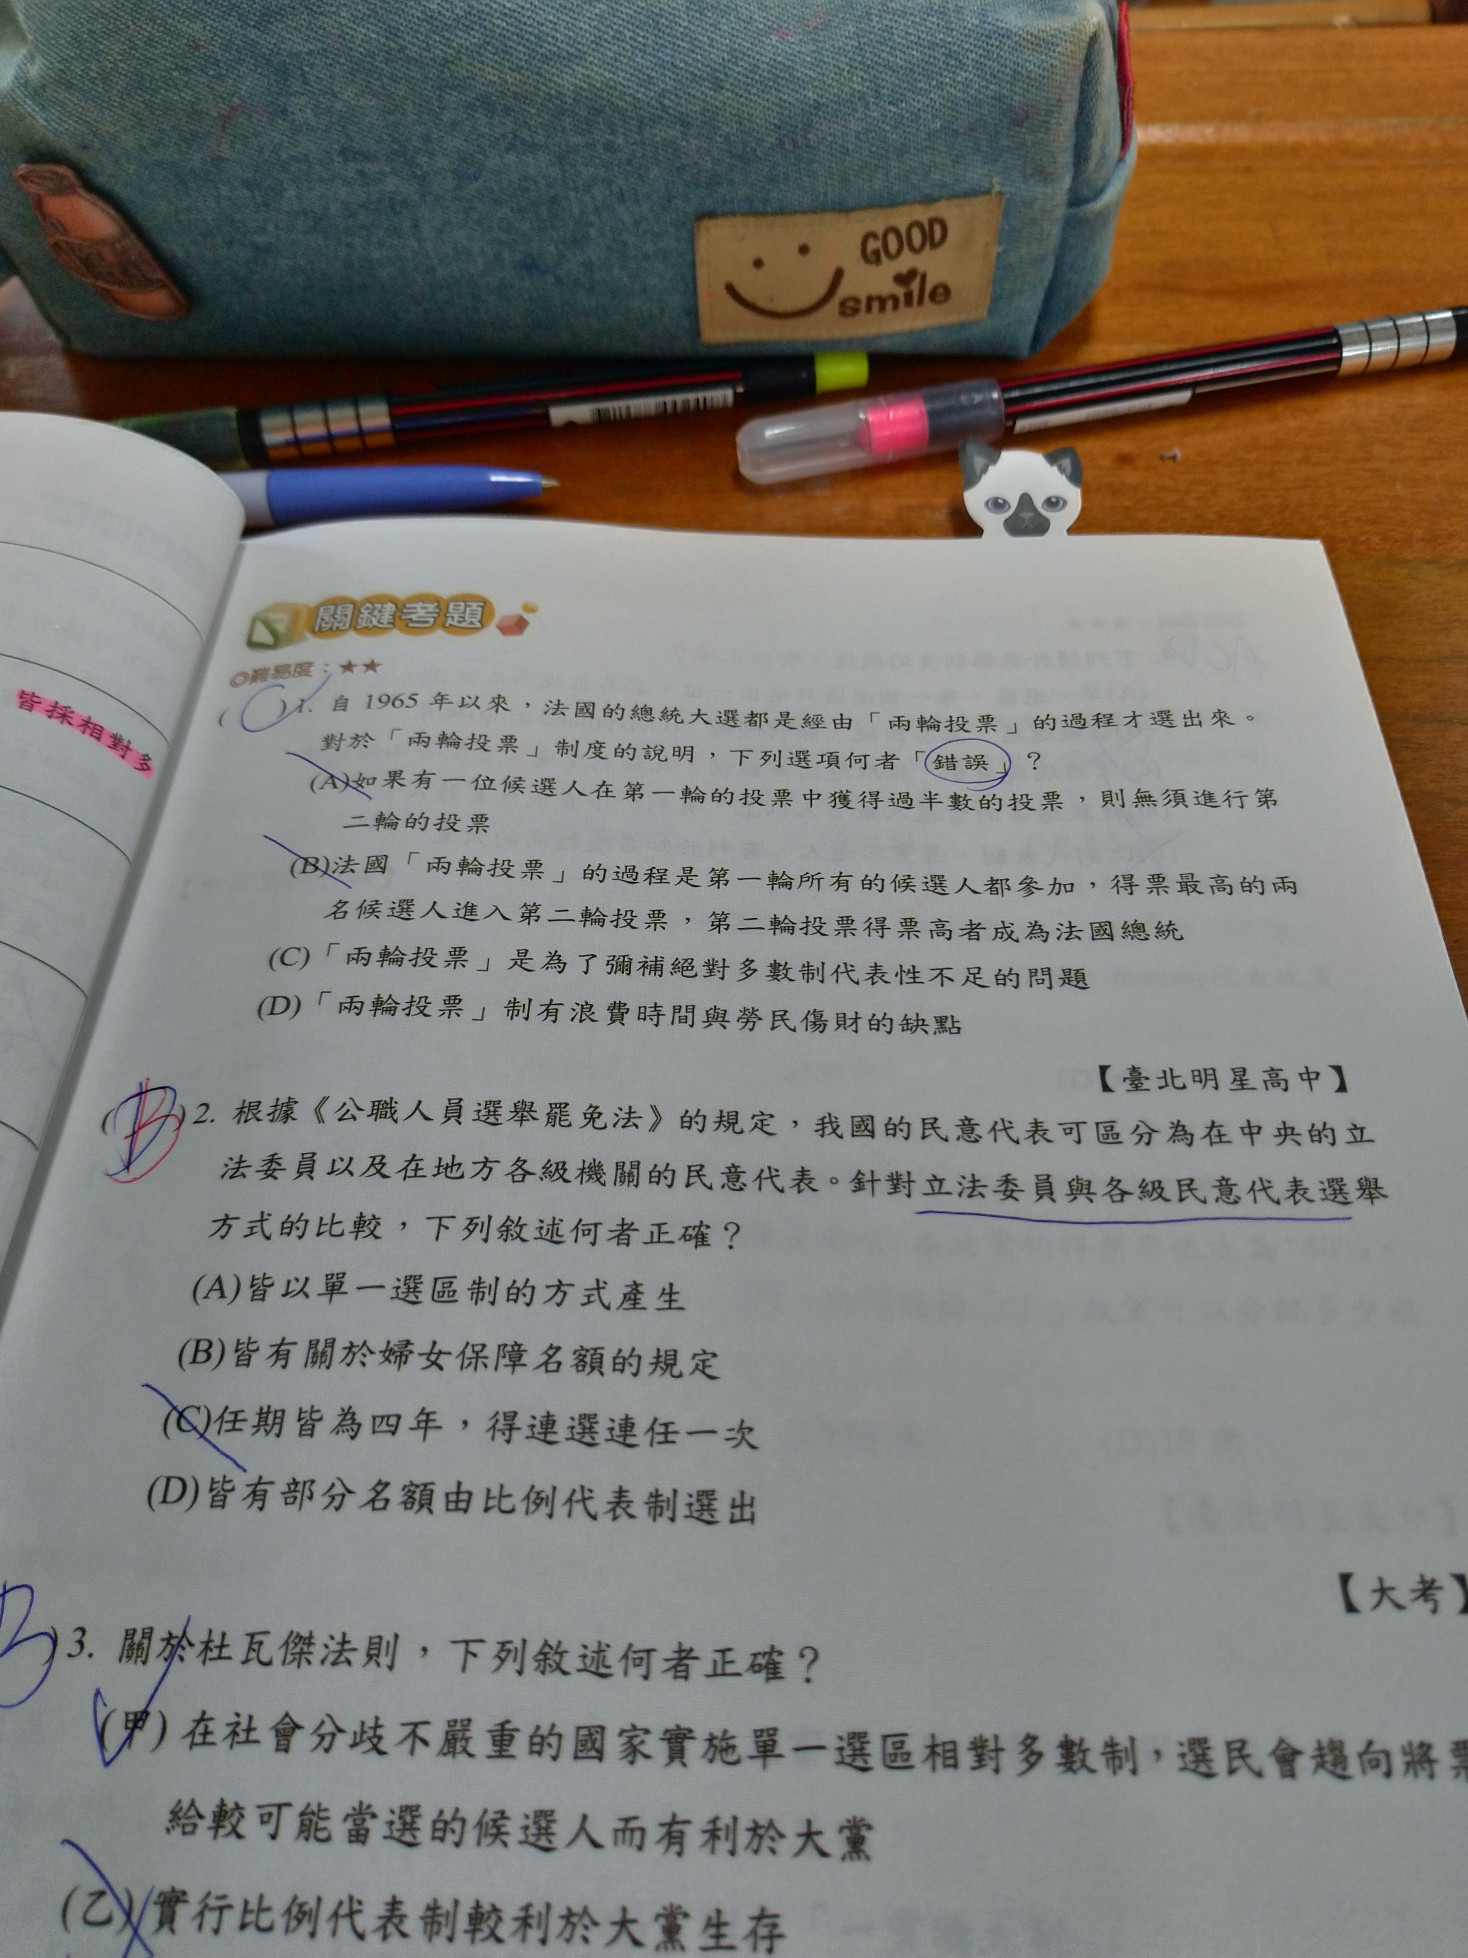 GOOD
smile
皆採相對多
關鍵考題
◎難易度：★★
(C)1. 自 1965 年以來，法國的總統大選都是經由「兩輪投票」的過程才選出來。
對於「兩輪投票」制度的說明，下列選項何者「錯誤」？
(A)如果有一位候選人在第一輪的投票中獲得過半數的投票，則無須進行第
二輪的投票
(B)法國「兩輪投票」的過程是第一輪所有的候選人都參加，得票最高的兩
名候選人進入第二輪投票，第二輪投票得票高者成為法國總統
(C)「兩輪投票」是為了彌補絕對多數制代表性不足的問題
(D)「兩輪投票」制有浪費時間與勞民傷財的缺點
【臺北明星高中】
(B)2. 根據《公職人員選舉罷免法》的規定，我國的民意代表可區分為在中央的立
法委員以及在地方各級機關的民意代表。針對立法委員與各級民意代表選舉
方式的比較，下列敘述何者正確？
(A)皆以單一選區制的方式產生
(B)皆有關於婦女保障名額的規定
(C)任期皆為四年，得連選連任一次
(D)皆有部分名額由比例代表制選出
【大考】
B)3. 關於杜瓦傑法則，下列敘述何者正確？
(甲)在社會分歧不嚴重的國家實施單一選區相對多數制，選民會趨向將票
給較可能當選的候選人而有利於大黨
(乙)實行比例代表制較利於大黨生存